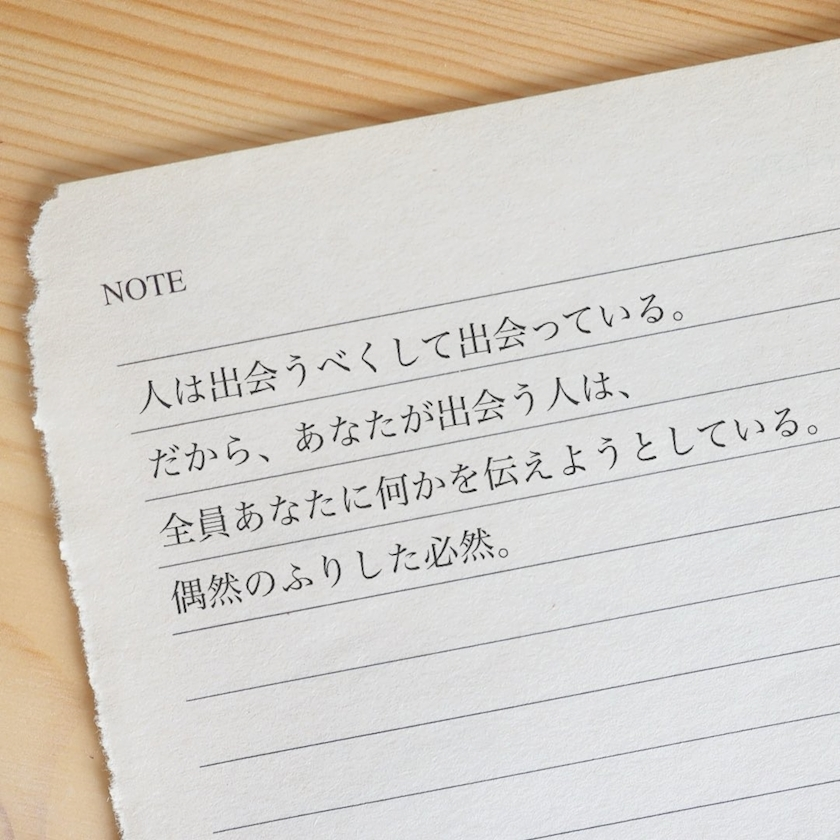 NOTE
人は出会うべくして出会っている。
だから、あなたが出会う人は、
全員あなたに何かを伝えようとしている。
偶然のふりした必然。